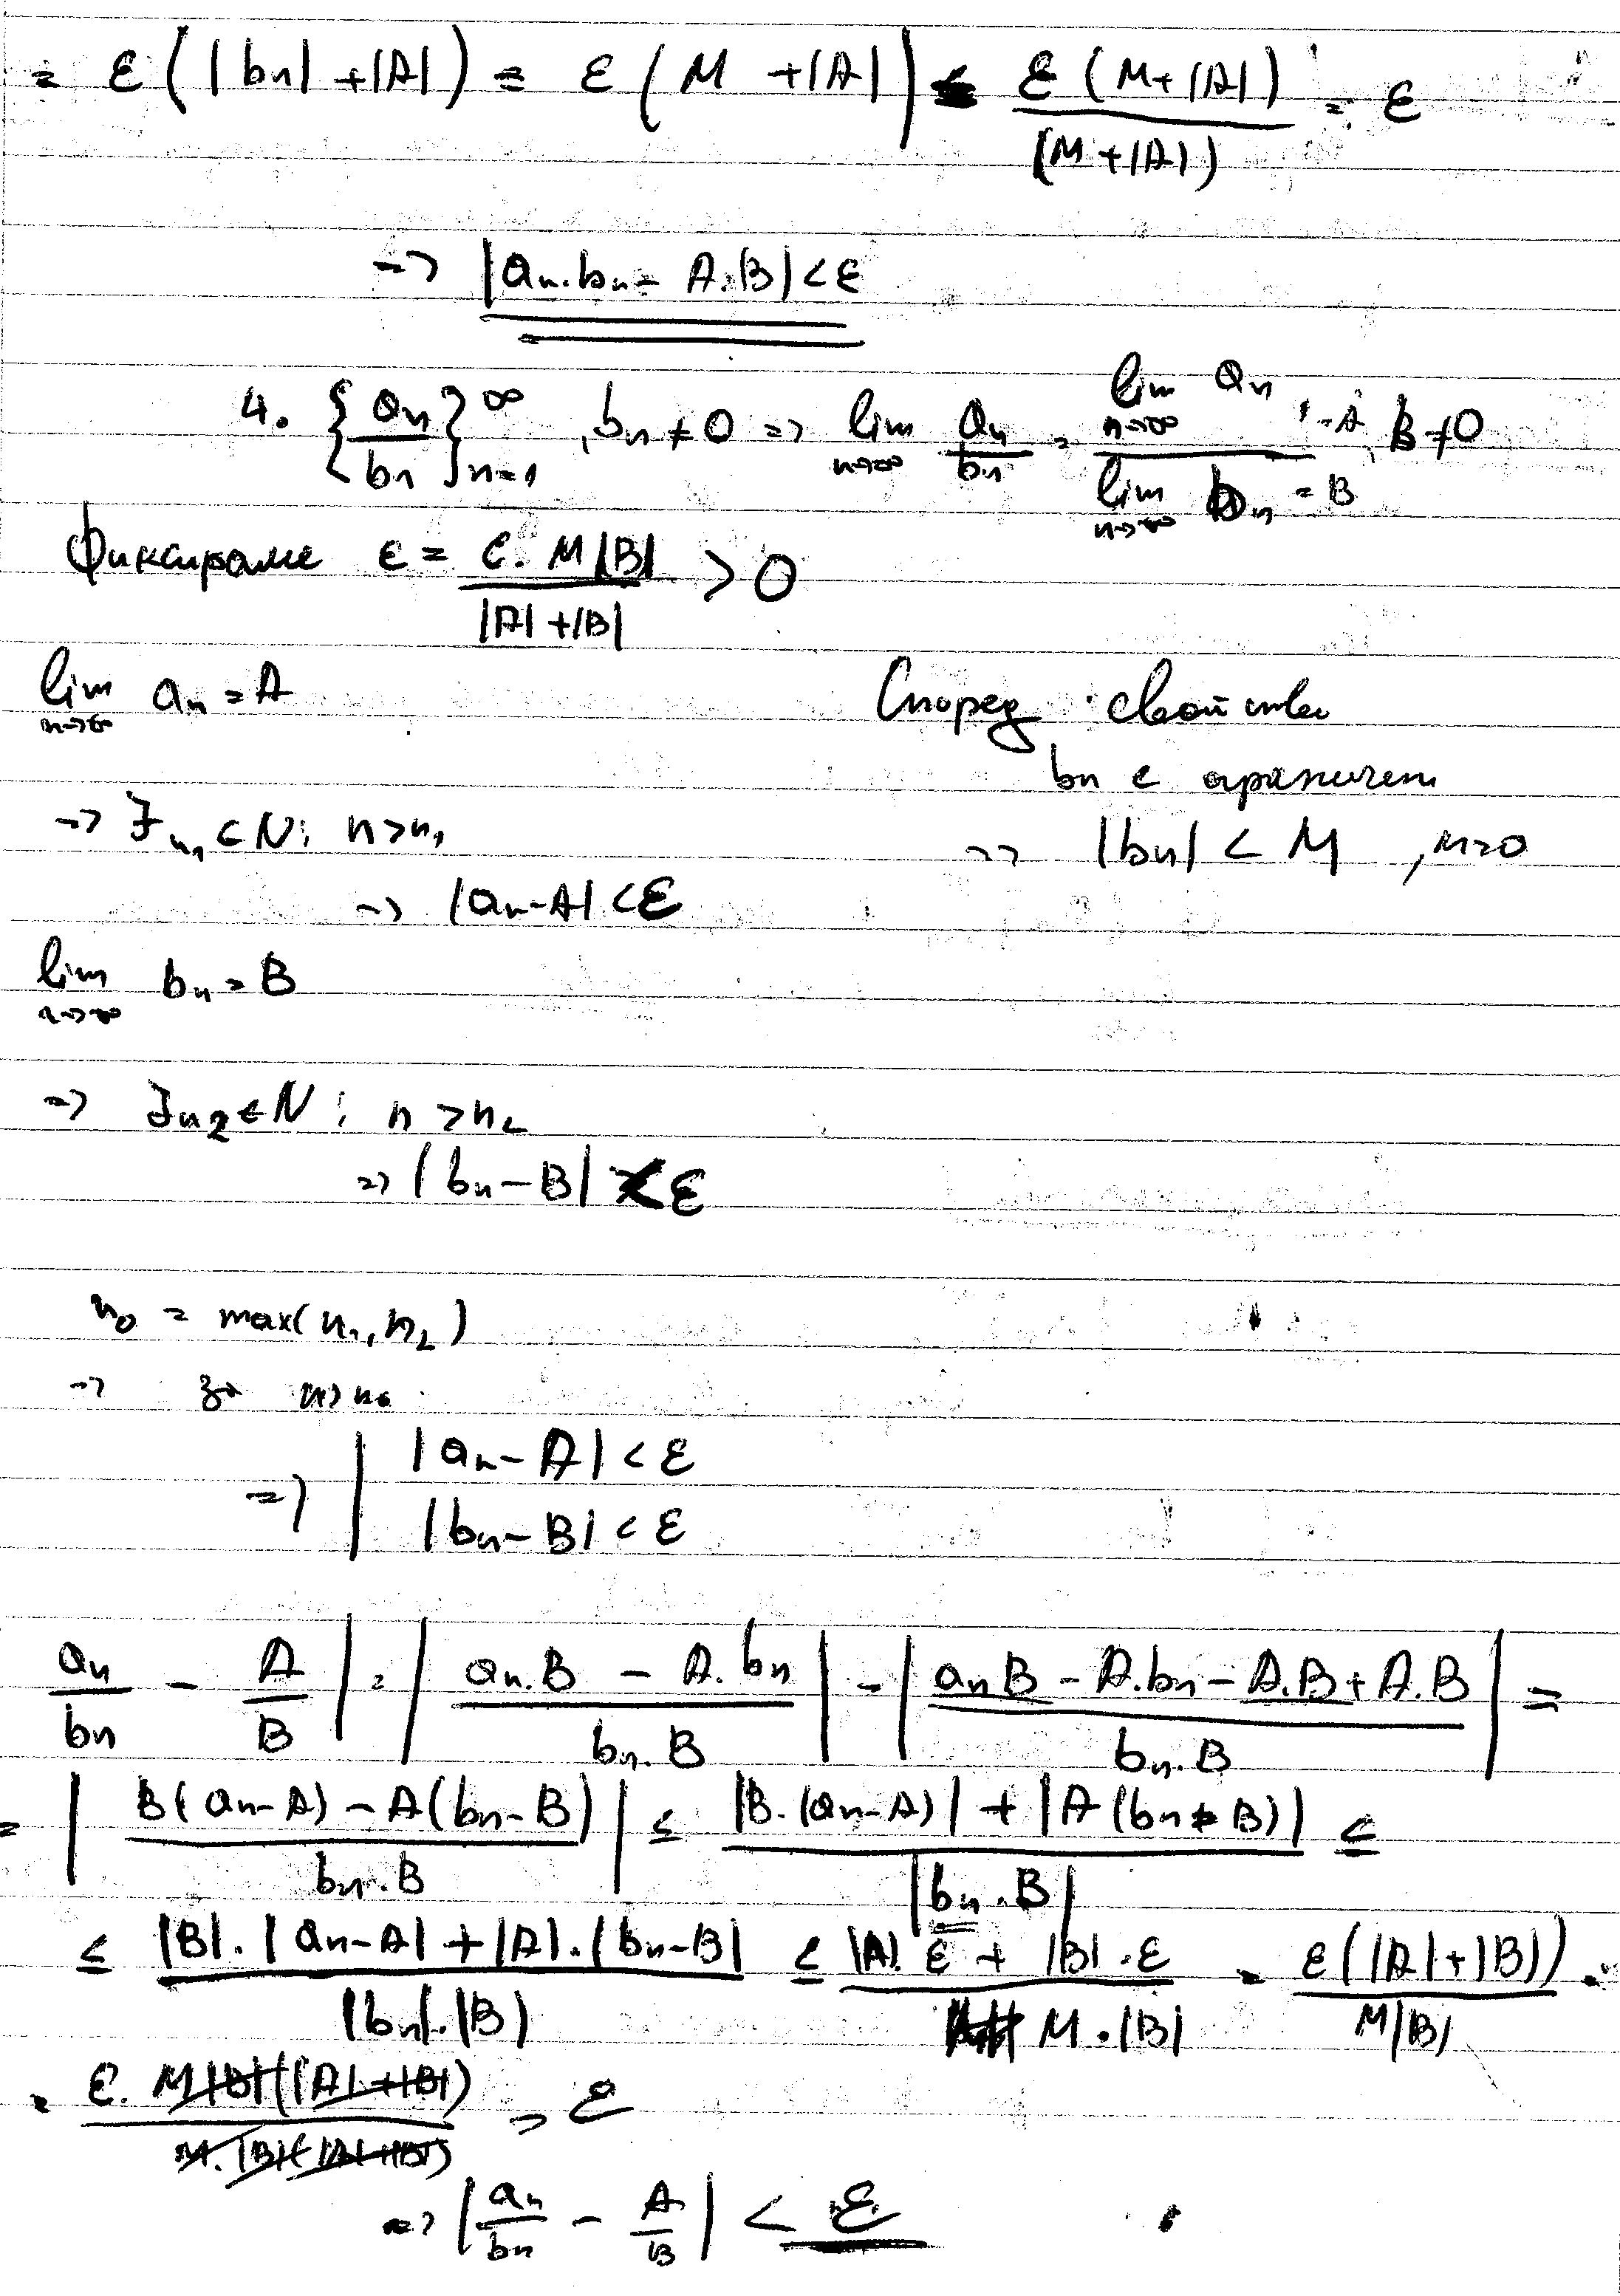 = ε(|bn|+|A|) = ε(M+|A|) ≤ ε(M+|A|)/(M+|A|) = ε
=> |an.bn - A.B| < ε
4. {an/bn}∞n=1, bn≠0 => lim n→∞ an/bn = lim n→∞ an = A / lim n→∞ bn = B, B≠0
Фиксираме ε = ε.M|B|/|A|+|B| > 0
lim n→∞ an = A
Според свойства
bn е ограничен
=> ∃n1∈N: n>n1
=> |bn| < M, M>0
=> |an-A| < ε
lim n→∞ bn = B
=> ∃n2∈N: n>n2
=> |bn-B| < ε
n0 = max(n1, n2)
=> за n>n0
=> | |an-A| < ε
|bn-B| < ε
an/bn - A/B| = |an.B - A.bn/bn.B| = |anB - A.bn - A.B + A.B/bn.B| =
= |B(an-A) - A(bn-B)/bn.B| ≤ |B.(an-A)| + |A(bn-B)|/|bn.B| ≤
≤ |B|.|an-A| + |A|.|bn-B|/|bn|.|B| ≤ |A|.ε + |B|.ε/M.|B| = ε(|A|+|B|)/M|B| =
= ε.M|B|(|A|+|B|)/M.|B|(|A|+|B|) = ε
=> |an/bn - A/B| < ε